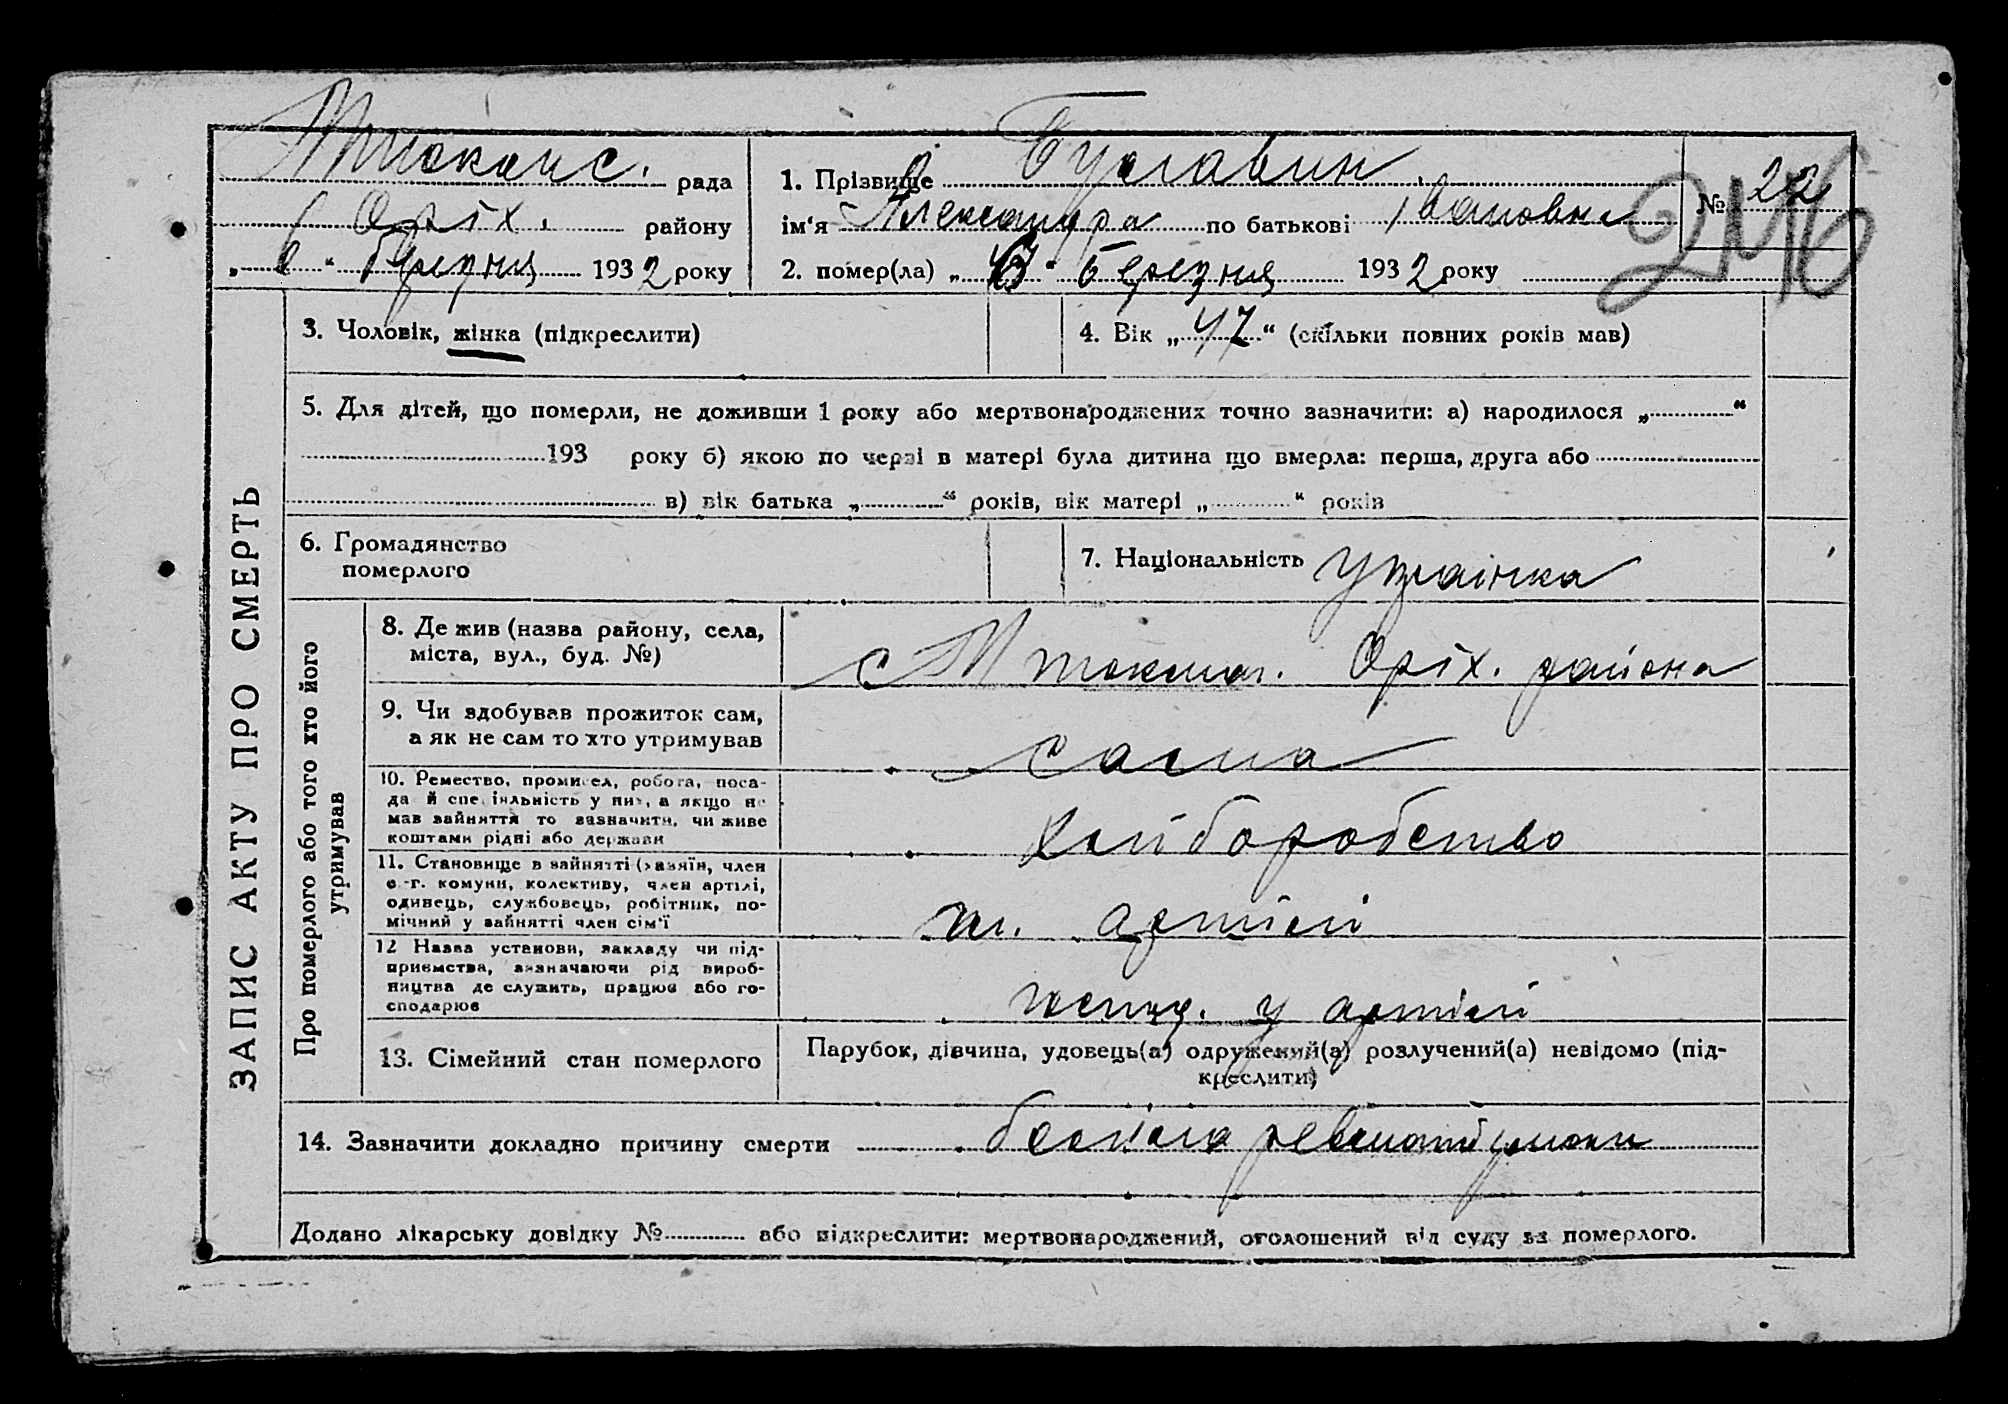 рада
Оріх. району
„ 6 “ Березня 1932 року
1. Прізвище
ім‘я Александра по батькові Івановна
№ 22
246
2. помер(ла) „ “ Березня 1932 року
ЗАПИС АКТУ ПРО СМЕРТЬ
3. Чоловік, жінка (підкреслити)
4. Вік „ 47 “ (скільки повних років мав)
5. Для дітей, що померли, не доживши 1 року або мертвонароджених точно зазначити: а) народилося „ “
193 року б) якою по черзі в матері була дитина що вмерла: перша, друга або
в) вік батька „ “ років, вік матері „ “ років
6. Громадянство
померлого
7. Національність Українка
Про померлого або того хто його
утримував
8. Де жив (назва району, села,
міста, вул., буд. №)
с Оріх. района
9. Чи здобував прожиток сам,
а як не сам то хто утримував
сама
10. Ремество, промисел, робота, поса-
да й спеціяльність у них, а якщо не
мав зайняття то зазначити, чи живе
коштами рідні або держави
хліборобство
11. Становище в зайнятті (хазяїн, член
с.-г. комуни, колективу, член артілі,
одинець, службовець, робітник, по-
мічний у зайнятті член сім'ї
чл. артілі
12 Назва установи, закладу чи під-
приємства, зазначаючи рід вироб-
ництва де служить, працює або го-
сподарює
у артілі
13. Сімейний стан померлого
Парубок, дівчина, удовець(а) одружений(а) розлучений(а) невідомо (під-
креслити)
14. Зазначити докладно причину смерти
Додано лікарську довідку № або підкреслити: мертвонароджений, оголошений від суду за померлого.